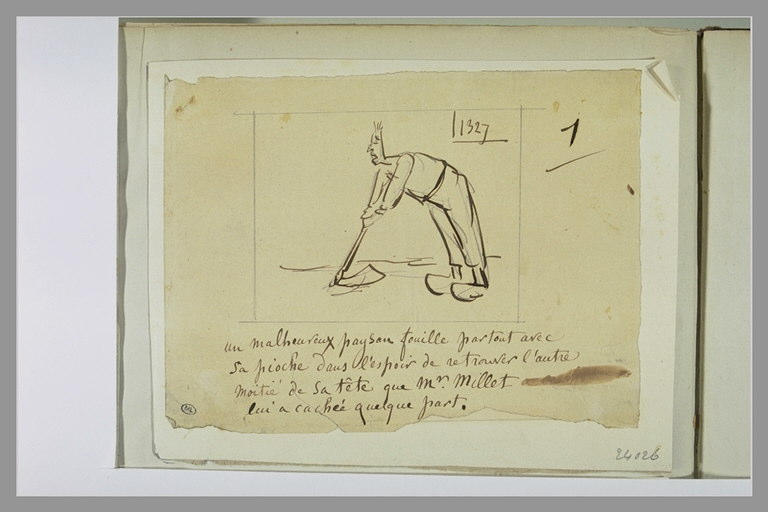 1327
1
un malheureux paysan fouille partout avec
sa pioche dans l'espoir de retrouver l'autre
moitié de sa tête que Mr. Millet
lui a cachée quelque part.
24026